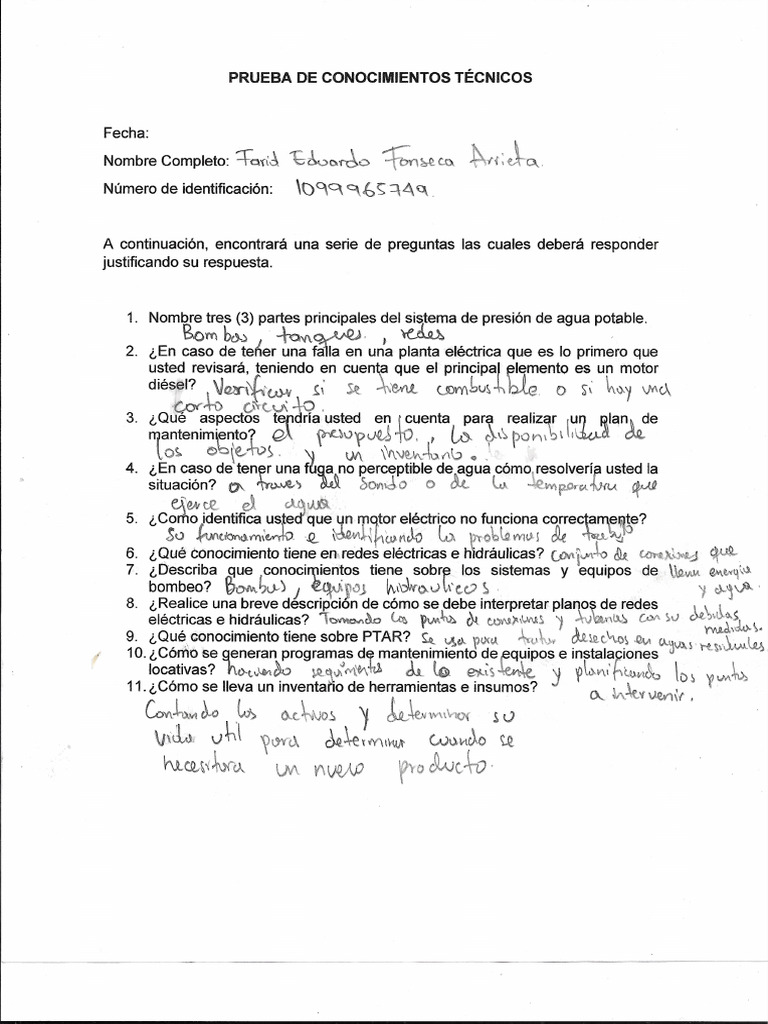 PRUEBA DE CONOCIMIENTOS TÉCNICOS
Fecha:
Nombre Completo: Farid Eduardo Fonseca Arrieta.
Número de identificación: 1099965749.
A continuación, encontrará una serie de preguntas las cuales deberá responder
justificando su respuesta.
1. Nombre tres (3) partes principales del sistema de presión de agua potable.
Bombas, tanques, redes
2. ¿En caso de tener una falla en una planta eléctrica que es lo primero que
usted revisará, teniendo en cuenta que el principal elemento es un motor
diésel? Verificar si se tiene combustible o si hay una
corto circuito.
3. ¿Qué aspectos tendría usted en cuenta para realizar un plan de
mantenimiento? el presupuesto, la disponibilidad de
los objetos. y un inventario.
4. ¿En caso de tener una fuga no perceptible de agua cómo resolvería usted la
situación? a traves del sonido o de la temperatura que
ejerce el agua
5. ¿Como identifica usted que un motor eléctrico no funciona correctamente?
su funcionamiento e identificando los problemas de trabajo
6. ¿Qué conocimiento tiene en redes eléctricas e hidráulicas? conjunto de conexiones que
7. ¿Describa que conocimientos tiene sobre los sistemas y equipos de llevan energia
bombeo? Bombas, equipos hidraulicos y agua.
8. ¿Realice una breve descripción de cómo se debe interpretar planos de redes
eléctricas e hidráulicas? Tomando los puntos de conexiones y tuberias con su debidas
medidas.
9. ¿Qué conocimiento tiene sobre PTAR? Se usa para tratar desechos en aguas residuales
10. ¿Cómo se generan programas de mantenimiento de equipos e instalaciones
locativas? haciendo seguimientos de lo existente y planificando los puntos
11. ¿Cómo se lleva un inventario de herramientas e insumos? a intervenir.
Contando los activos y determinar su
vida util para determinar cuando se
necesitara un nuevo producto.